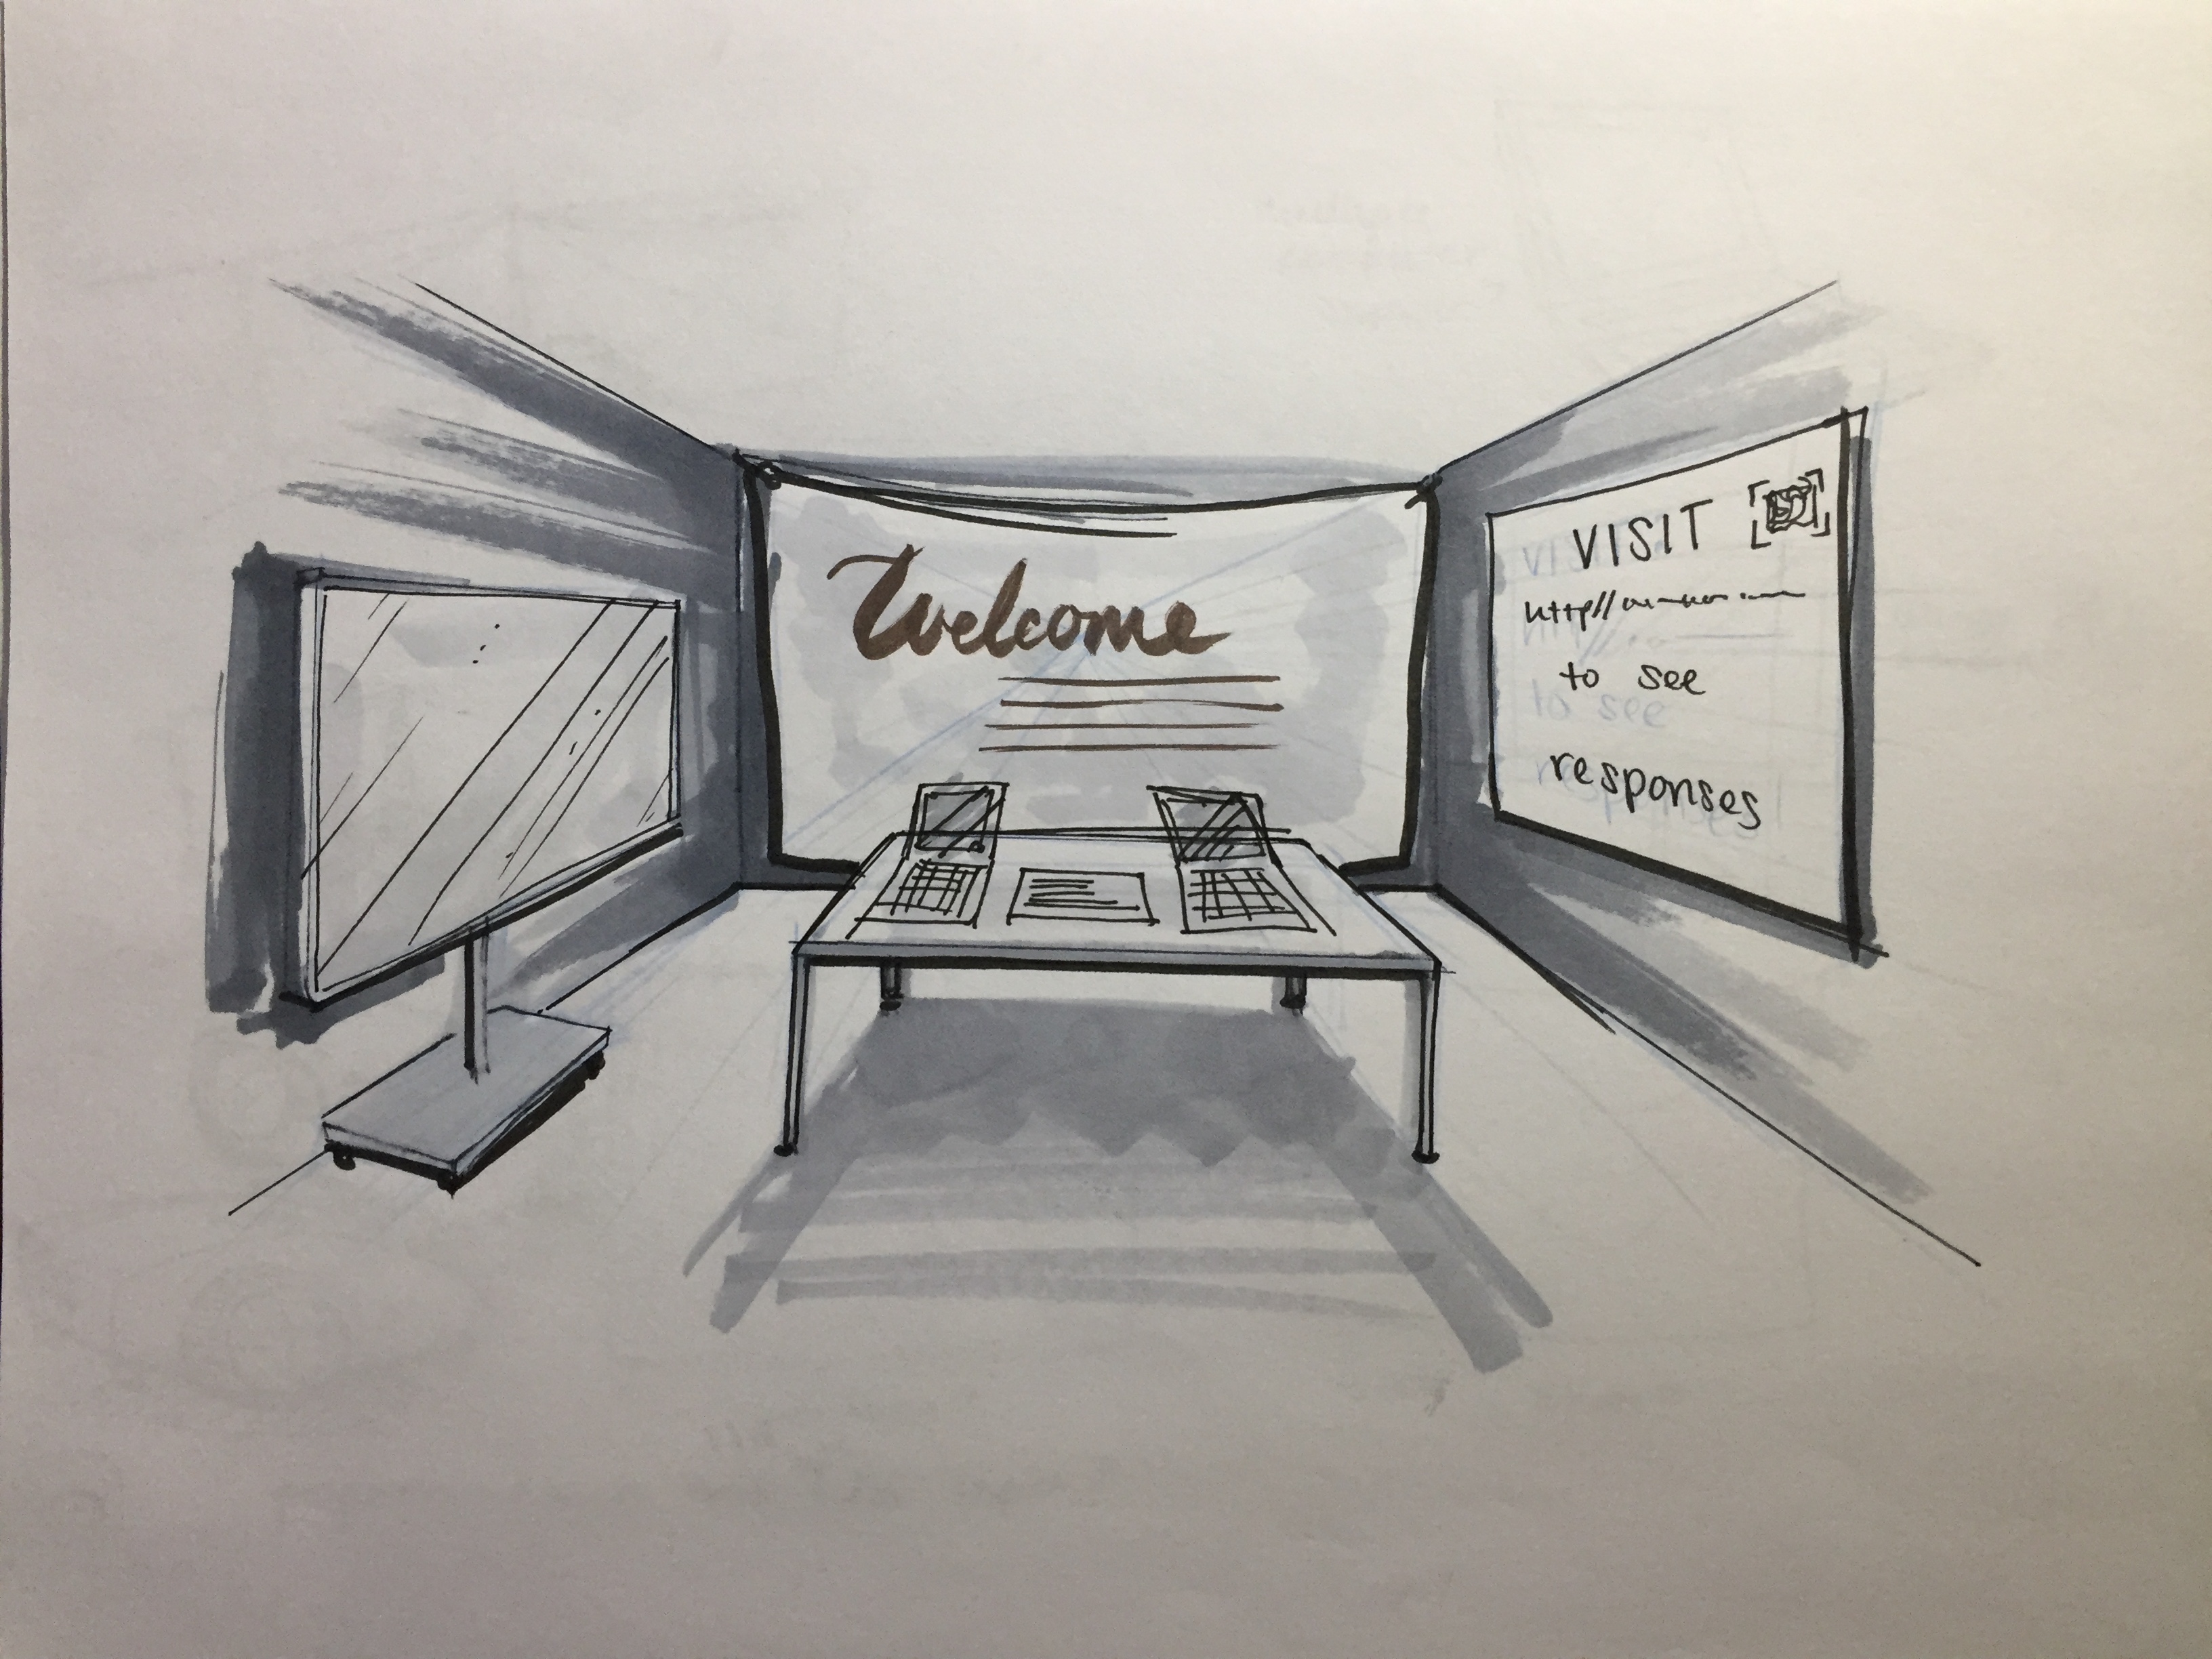 Welcome
VISIT
http//
to see
responses